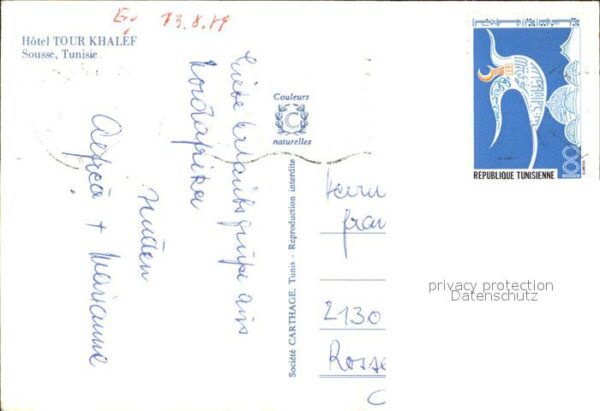 13.8.77
Hôtel TOUR KHALEF
Sousse, Tunisie
Liebe Urlaubsgrüße aus
Nordafrika
+ Marianne
Couleurs
C
naturelles
Société CARTHAGE, Tunis - Reproduction interdite
REPUBLIQUE TUNISIENNE
100
Herrn
fran
2130
Rosse
privacy protection
Datenschutz